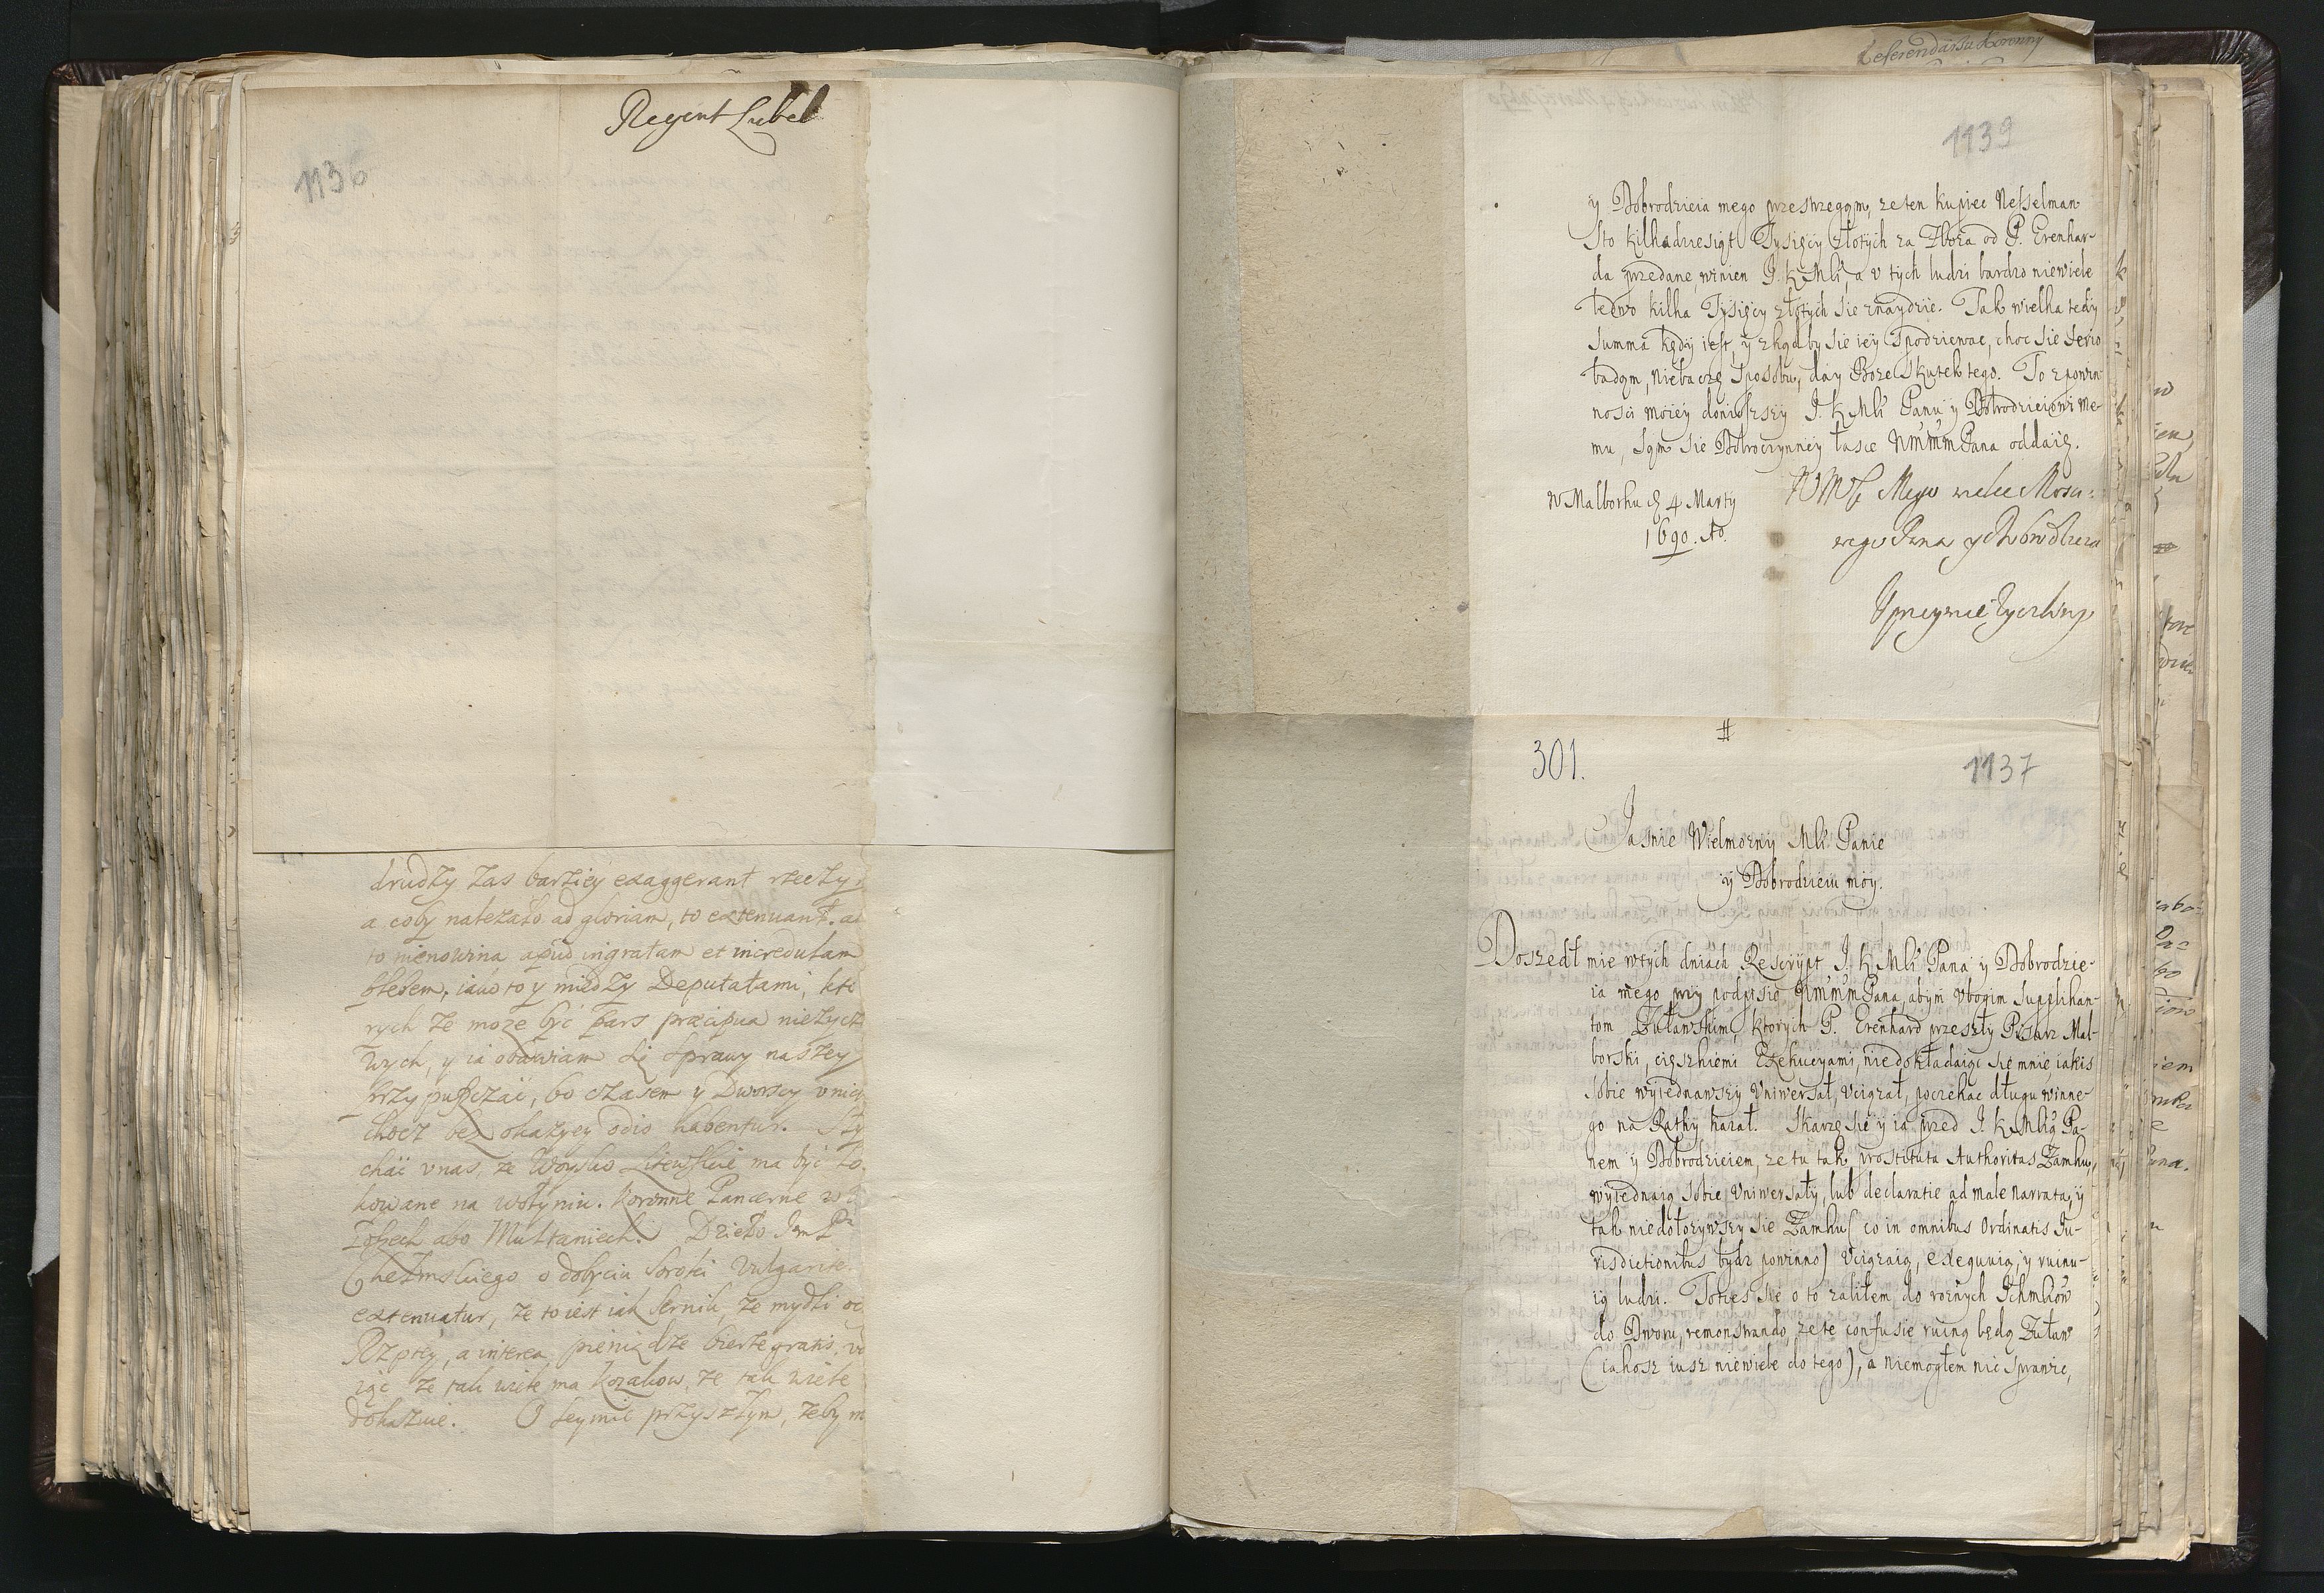 Regent Lubel
1136
drudzy zas barziey exaggerant rzeczy,
a coby należało ad gloriam, to extenuant. al
to nienowina apud ingratam et incredulam
plebem, iako to y miedzy Deputatami, kto
rych że może być pars præcipua nieżycz
wych, y ia obawiam się sprawy naszey
przypuszczać, bo czasem y Dworscy vnich
choćz bez okazyey odio habentur. Sły
chać vnas, że Woysko Litewskie ma być lo
kowane na Wołyniu. Koronne Pancerne w
Włoszech abo Multaniech. Dzieło Jm Pa
Chełmskiego o dobyciu Soroki vulgariter
extenuatur, że to iest iak Sernik, że mydli oc
Rzptey, a interea pieniądze bierze gratis, vd
iąc że tak wiele ma Kozakow, że tak wiele
dokazuie. O Seymie przyszłym, żeby m
Referendarza Koronny
1139
y Dobrodzieia mego przestrzegąm, ze ten kupiec Nesselman
Sto kilkadziesiąt Tysięcy złotych za Zboza od P. Erenhar-
da przedane, winien J. K. Mści, a v tych ludzi bardzo niewiele
ledwo kilka Tysięcy złotych sie znaydzie. Tak wielka tedy
Summa kędy iest, y zkądby sie iey spodziewac, choc sie serio
badąm, niebaczę sposobu, day Boze skutek tego. To z powin-
nosci moiey doniozszy J. K Mści Panu y Dobrodzieiowi me-
mu, sąm sie Dobroczynney łasce WmmmPana oddaię.
W Malborku d. 4 Marty
1690. Ao.
WMści Mego wielce Mosci-
wego Pana y Dobrodzieia
Vprzeymie Zyczliwy
#
301.
1137
Jasnie Wielmozny Mści Panie
y Dobrodzieiu moy.
Doszedł mie wtych dniach Rescrypt J. K Mści Pana y Dobrodzie-
ia mego przy podpisie WmmmPana, abym vbogim Supplikan-
tom Zuławskim, ktorych P. Erenhard przeszły Pisarz Mal-
borski, cięszkiemi Exekucyami, niedokładaiąc sie mnie iakis
sobie wyiednawszy Vniwersał, vciązał, poczekac długu winne-
go na Rathy kazał. Skarzę sie y ia przed J. K Mścią Pa-
nem y Dobrodzieiem, ze tu tak prostituta Authoritas Zamku,
wyiednaią sobie Vniwersały, lub declaratie ad male narrata, y
tak niedołozywszy sie Zamku (co in omnibus Ordinatis Ju-
risdictionibus bydz powinno) vciązaią, exequuią, y ruinu-
ią ludzi. Toties sie o to zaliłem do roznych Ichmściow
do Dworu, remonstrando, ze te confusie ruiną będą Zuław
(iakosz iusz niewiele do tego), a niemogłem nic sprawic,